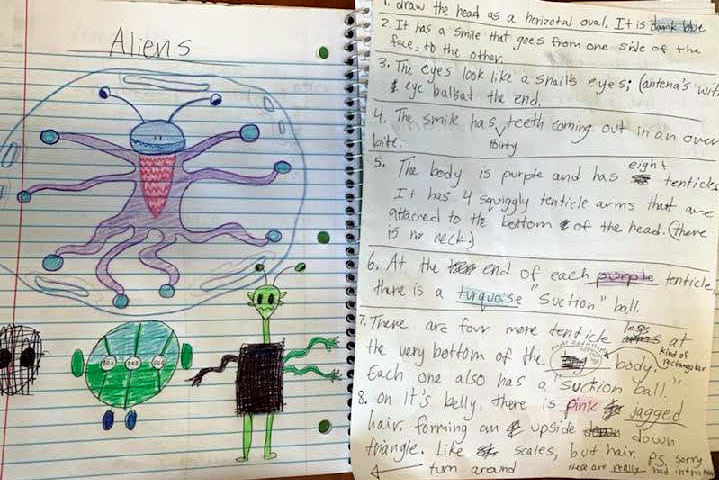 Aliens
1. draw the head as a horizotal oval. It is dark blue
2. It has a smile that goes from one side of the
face, to the other.
3. The eyes look like a snail's eyes; (antena's with
eye balls at the end.
4. The smile has teeth coming out in an over
bite. Pointy
5. The body is purple and has eight tenticles
It has 4 squiggly tenticle arms that are
attached to the bottom of the head. (there
is no neck.)
6. At the end of each purple tenticle,
there is a turquoise "suction" ball.
7. There are four more tenticle legs at
the very bottom of the body. kind of rectangular
Each one also has a "suction ball."
8. on it's belly, there is pink jagged
hair, forming an upside down
triangle. Like scales, but hair.
turn around
P.S. sorry
these are really bad instructions